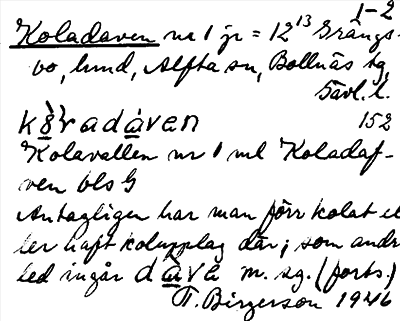 1-2
Koladaven nr 1 jr = 12¹³ Grängs-
bo, hmd, Alfta sn, Bollnäs tg,
Gävl. l.
kò̱radà̱ven 152
Kolavallen nr 1 ml Koladaf-
ven bls G
Antagligen har man förr kolat el
ler haft kolupplag där; som andr
led ingår dà̱ve m. sg. (forts.)
T. Birgerson 1946